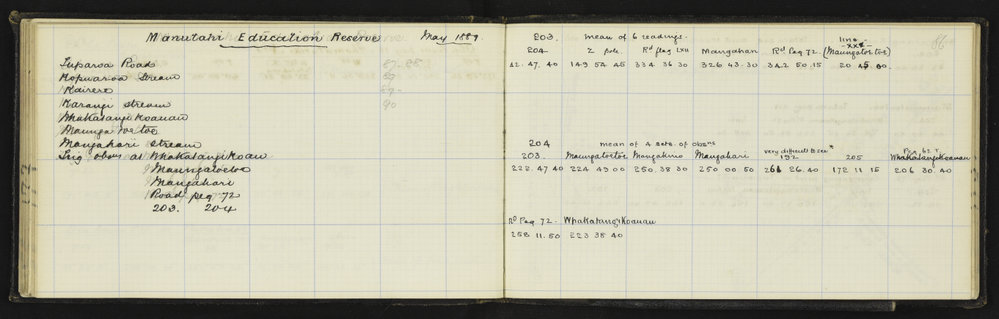 Manutahi Education Reserve May 1889
Tuparoa Road 87-88
Kopuaroa Stream 89
Kairere 89-
Karanji stream 90
Whakatangikoauau
Maungatoetoe
Mangahari stream
Trig obsns at Whakatangikoau
" Maungatoetoe
" Mangahari
Road peg 72
203. 204
86
203. mean of 6 readings.
204 2 pole. Rd flag LXII Mangahari Rd Peg 72 line (Maungatoetoe)
42. 47. 40 149 54 45 334 36 30 326 43. 30 342 50. 15 20 45 00.
204 mean of 4 sets of obsns
203. Maungatoetoe Mangahino Mangahari very difficult to see 192 205 Peg 62 T. Whakatangikoauau
222. 47 40 224 49 00 250. 38 30 250 00 50 261 26. 40 172 11 15 206 30. 40
Rd Peg 72 - Whakatangikoauau
258 11. 50 223 38 40